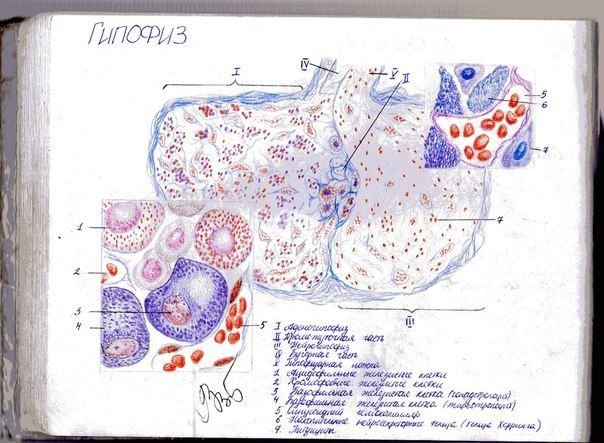 ГИПОФИЗ
I
IV
V
II
5
6
7
1
2
3
4
5
7
III
I Аденогипофиз
II Промежуточная часть
III Нейрогипофиз
IV Бугорная часть
V Гипофизарная ножка
1 Ацидофильные железистые клетки
2 Хромофобные железистые клетки
3 Базофильная железистая клетка (гонадотропоцит)
4 Базофильная железистая клетка (тиреотропоцит)
5 Синусоидный гемокапилляр
6 нейросекреторные тельца (тельца Херринга)
7 Питуициты